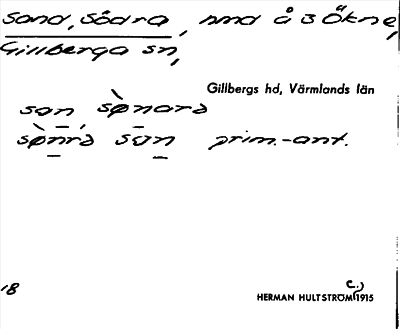 Sand, Södra, hmd å 3 Ökne,
Gillberga sn,
Gillbergs hd, Värmlands län
san sø̀nard
prim.-ant.
18
c.)
HERMAN HULTSTRÖM 1915